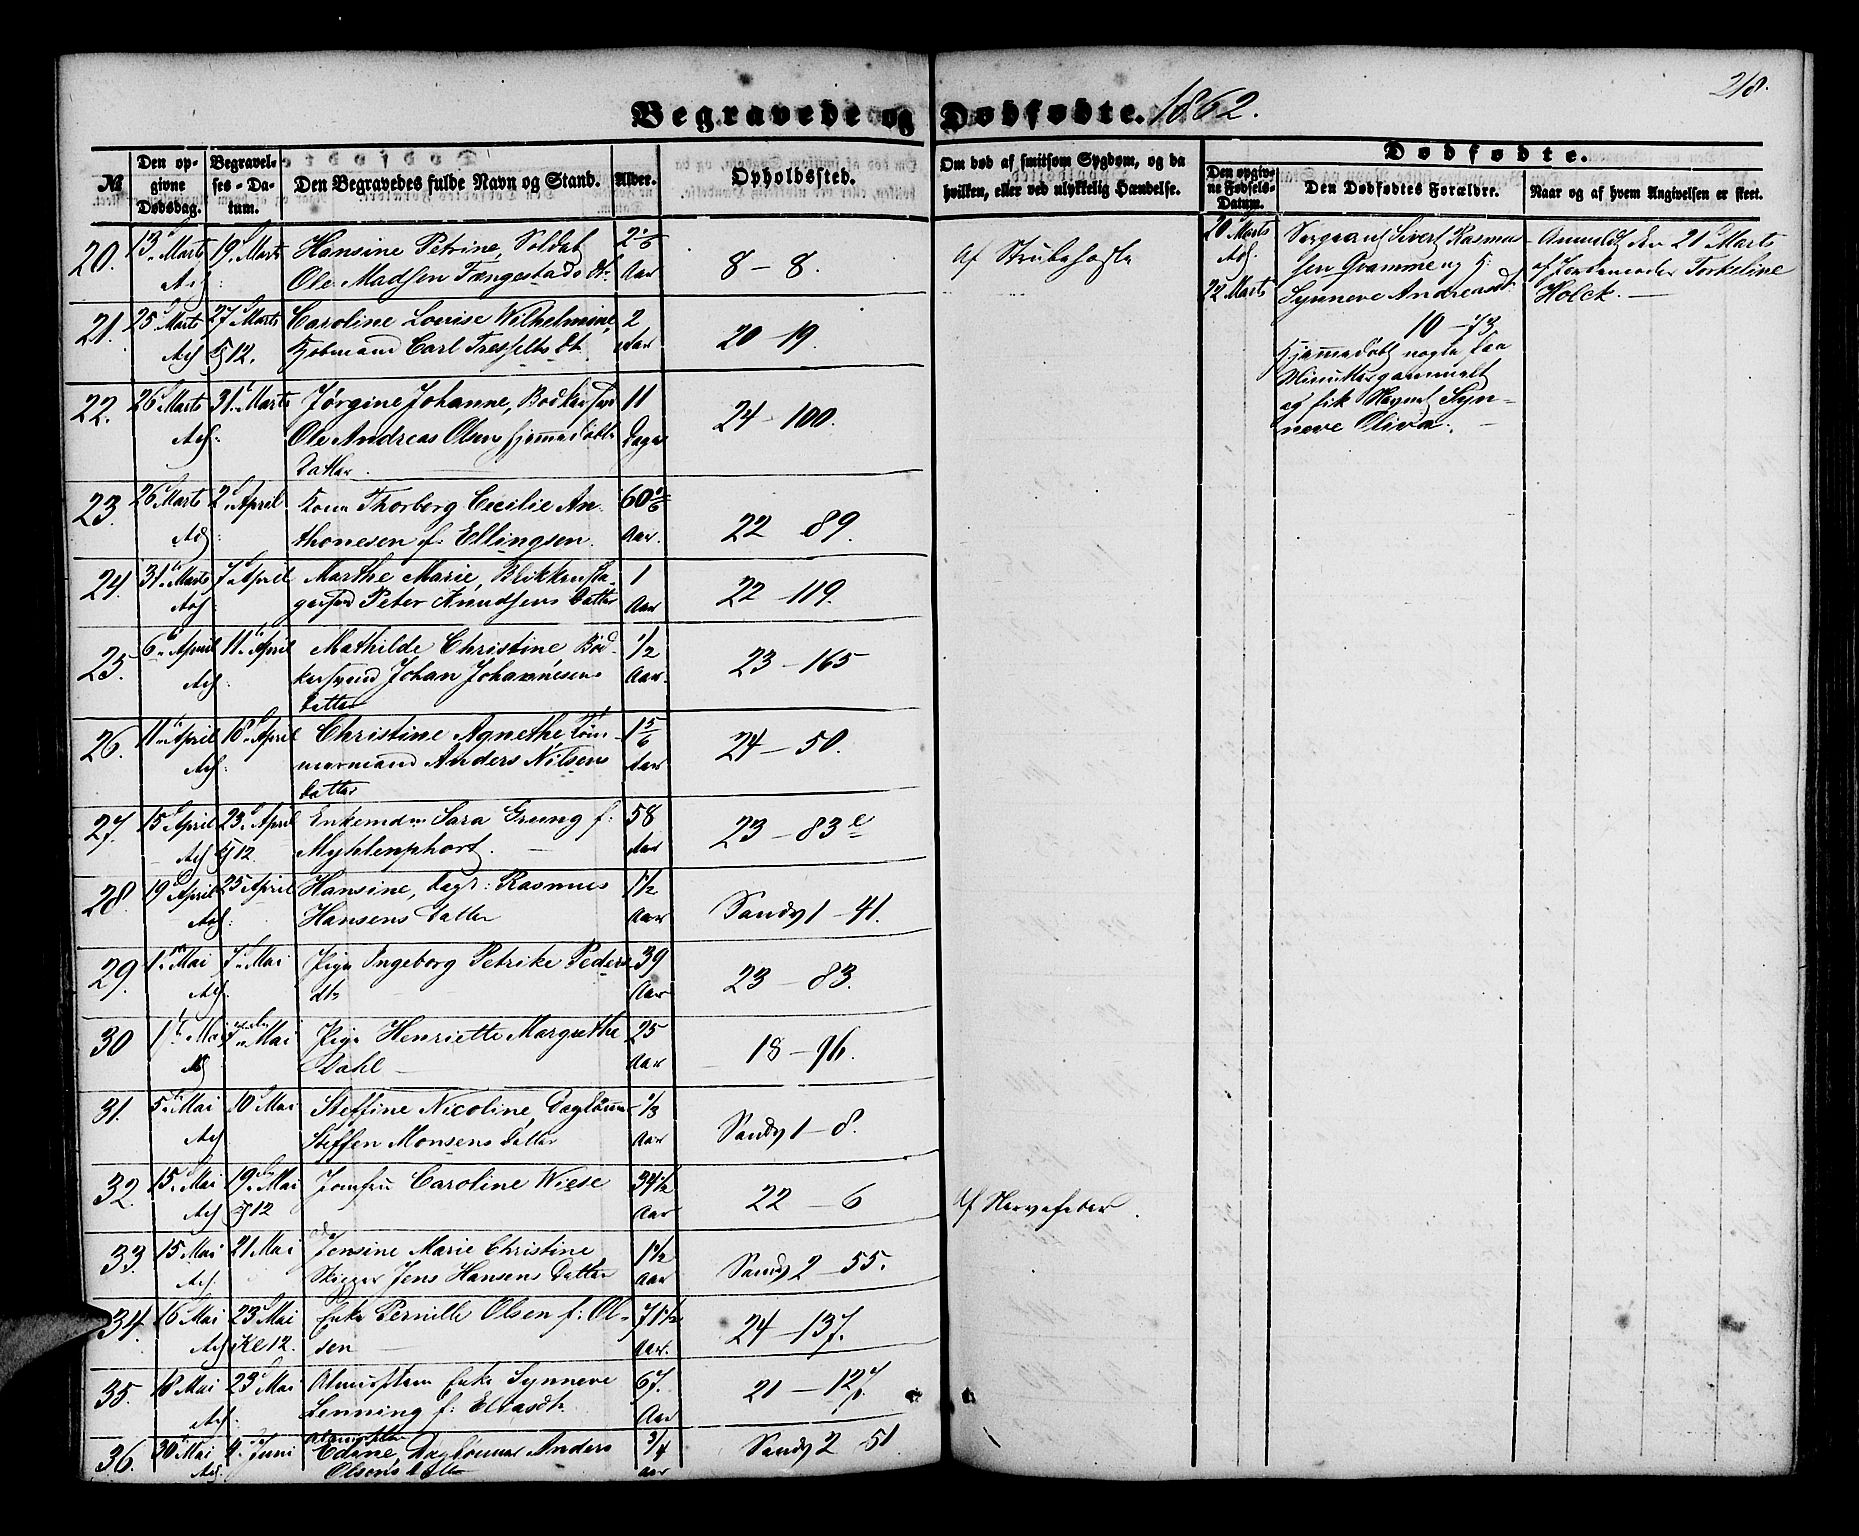 218.
Begravede og Dødfødte. 1862.
№
Den opgivne Dødsdag.
Begravelses-Datum.
Den Begravedes fulde Navn og Stand.
Alder.
Opholdssted.
Om død af smitsom Sygdom, og da hvilken, eller ved ulykkelig Hændelse.
Dødfødte.
Den opgivne Fødsels-Datum.
Den Dødfødtes Forældre.
Naar og af hvem Angivelsen er skeet.
20. 13 Marts 19 Marts Hansine Petrine, Soldat
Ole Madsen Tængestads Dtr Aar 8 – 8. Af Strubehoste
20 Marts Sergeant Sivert Rasmus-
sen Gramme og H:
22 Marts Synneve Andreasdt
10 – 73
hjemmedøbt nogle faa
Minutter gammelt
og fik Navnet Syn-
neve Oliva.
Anmeldt den 21 Marts
af Jordemoder Torkeline
Holck. —
21. 25 Marts 27 Marts Caroline Louise Wilhelmine, 2
Kjøbmand Carl Tresselts Dt. Aar 20 – 19.
22. 26 Marts 31 Marts Jørgine Johanne, Bødkersvend 11
Ole Andreas Olsens hjemmedøbte Dage 24 – 100.
Datter.
23. 26 Marts 2 April Kone Thorborg Cecilie An-
thonesen f. Ellingsen. Aar. 22 89.
24. 31 Marts 7 April Marthe Marie, Blikkensla- 1
gersvd Peter Knudsens Datter Aar 22 – 119.
25. 6 April 11 April Mathilde Christine Bød- 1/2
kersvend Johan Johannesens Aar. 23 – 165
Datter
26. 11 April 18 April Christine Agnethe Tøm- 1 5/6
mermand Anders Nilsens Aar 24 – 50.
Datter
27. 15 April 23 April Enkemdm Sara Greeng f: 58
Kl 12. Myhlenphort. — Aar 23 – 83 e
28. 19 April 25 April Hansine, Dagr: Rasmus 1 1/2
Hansens Datter Aar Sandv 1 – 41.
29. 1 Mai 7 Mai Pige Ingeborg Petrike Peders 39
dtr Aar 23 – 83.
30 1 Mai 7 Mai Pige Henriette Margrethe 25
Dahl — Aar 18 – 96.
31. 5 Mai 10 Mai Steffine Nicoline, Daglønner 1/3
Steffen Monsens Datter Aar Sandv 1 – 8.
32. 15 Mai 19 Mai Jomfru Caroline Wiese 34 1/2
12 Aar 22 – 6 Af Nervefeber.
33. 15 Mai 21 Mai Jensine Marie Christine 1 1/2
Skipper Jens Hansens Datter Aar Sandv 2 – 55.
34. 16 Mai 23 Mai Enke Pernille Olsen f: Ol- 71 1/2
Kl 12. sen — Aar. 24 – 137.
35. 18 Mai 23 Mai Almisslem Enke Synneve 67.
Lenning f. Eliasdtr. Aar 21 – 127
36. 30 Mai 4 Juni Edine, Daglønner Anders 3/4
Olsens Datter Aar Sandv 2 – 51